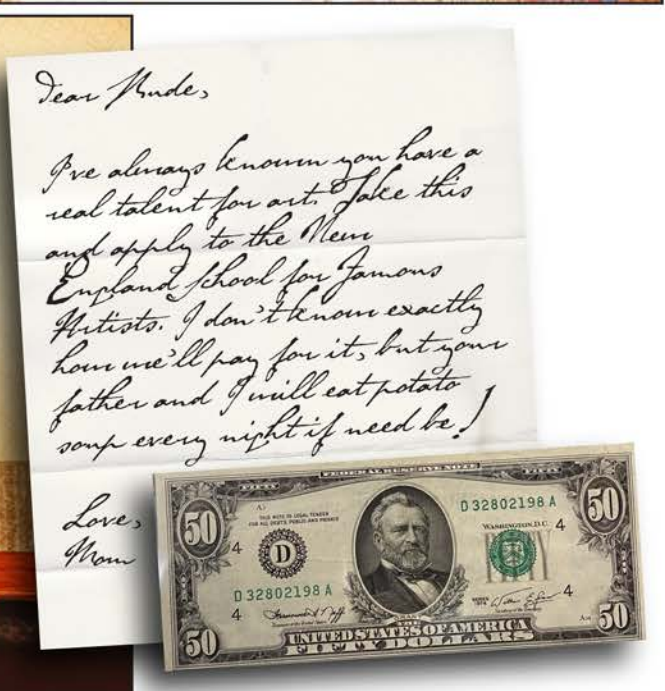 Dear Aude,
I've always known you have a
real talent for art. Take this
and apply to the New
England School for Famous
Artists. I don't know exactly
how we'll pay for it, but your
father and I will eat potato
soup every night if need be!
Love,
Mom
FEDERAL RESERVE NOTE
FIFTY
FIFTY
50
50
THIS NOTE IS LEGAL TENDER
FOR ALL DEBTS, PUBLIC AND PRIVATE
D 32802198 A
WASHINGTON, D.C.
4
4
D
D 32802198 A
4
4
SERIES
1974
GRANT
50
50
UNITED STATES OF AMERICA
FIFTY DOLLARS